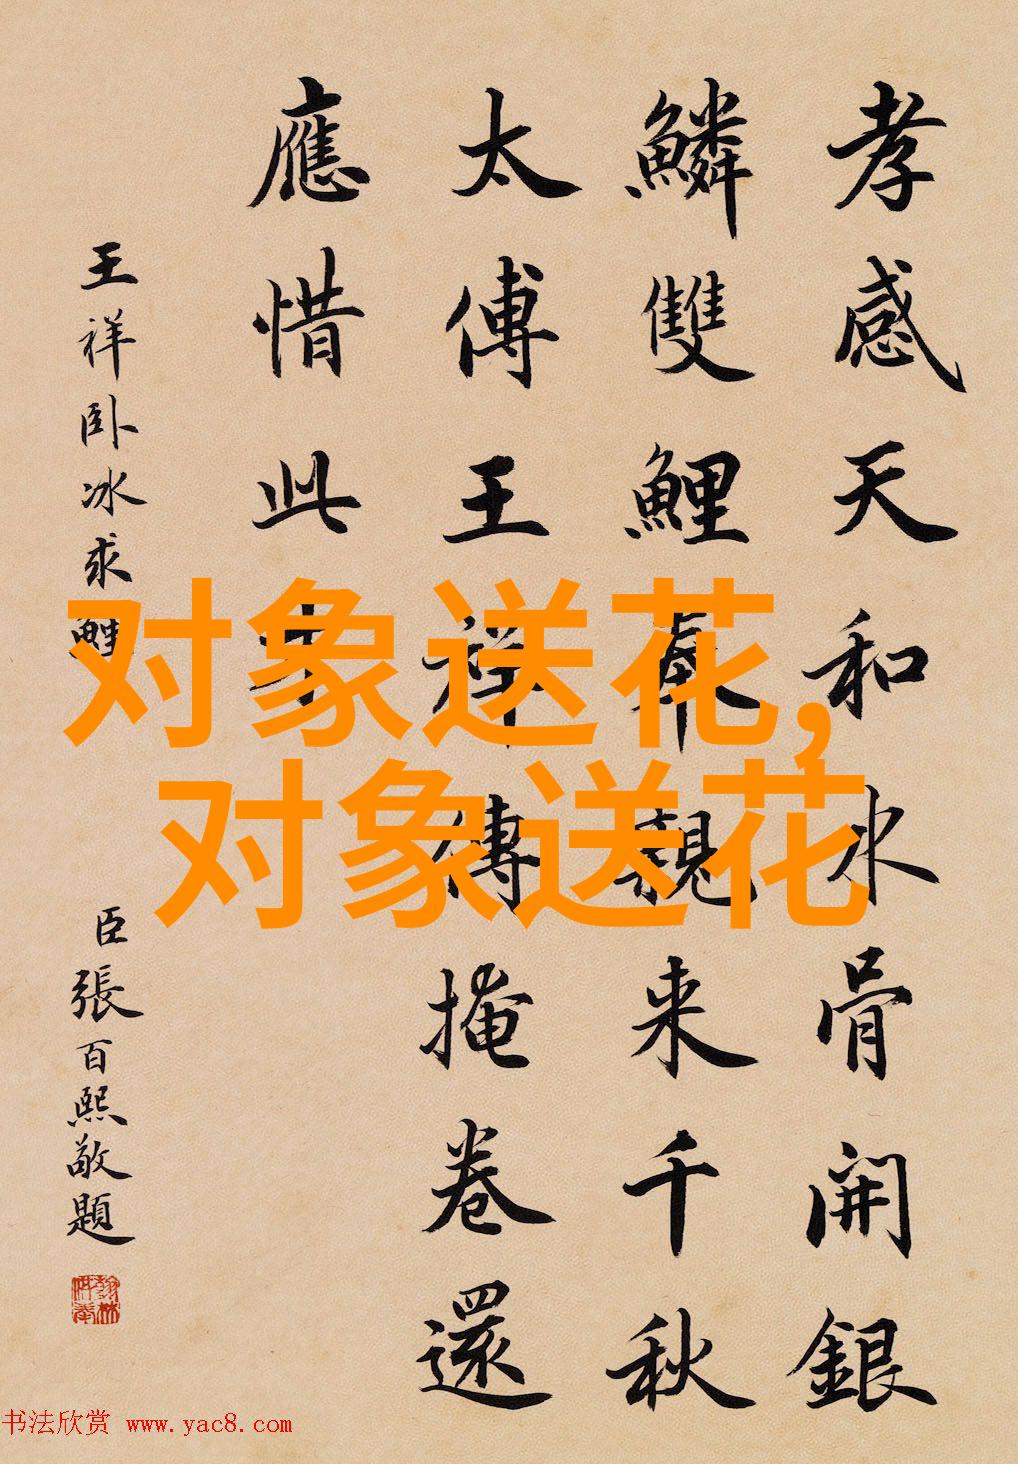 孝感天和冰骨開銀
鱗雙鯉奉親来千秋
太傅王祥傳掩卷還
應惜此才
王祥卧冰求鯉
臣張百熙敬題
翰林供奉
对象送花,
对象送花
书法欣赏 www.yac8.com